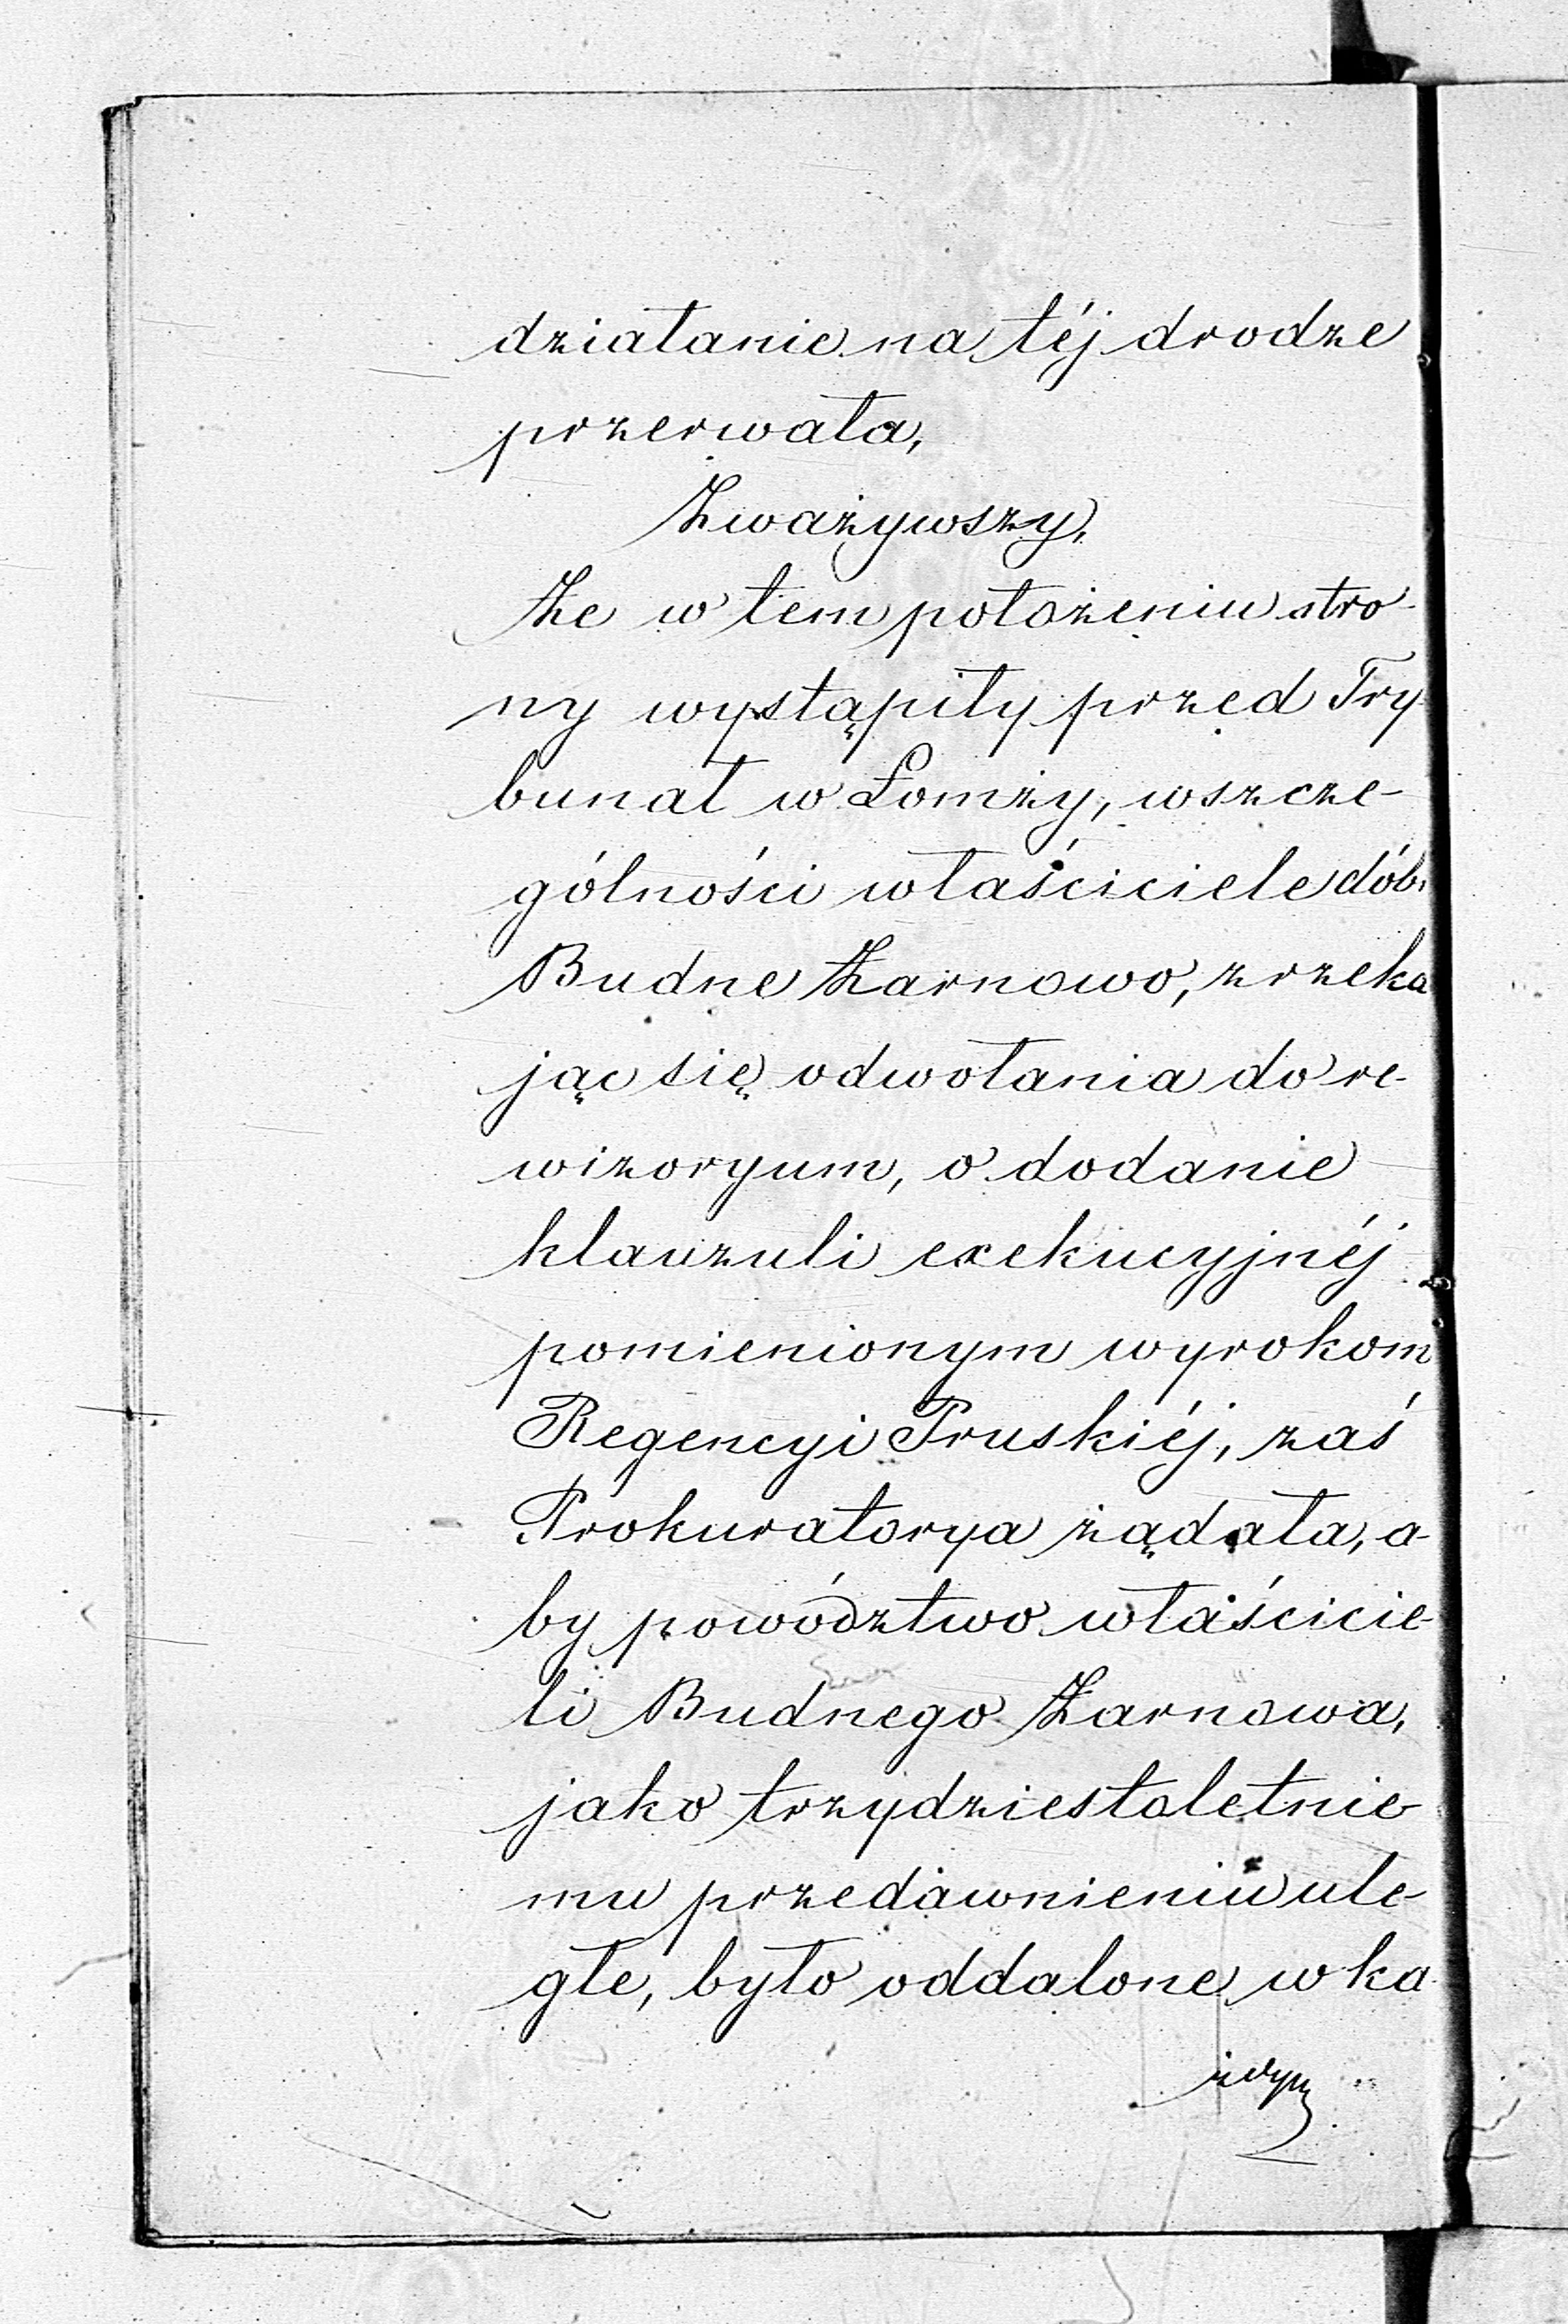 działanie na téj drodze
przerwała,
Zważywszy,
Że w tem położeniu stro-
ny wystąpiły przed Try-
bunał w Łomży, wszcze-
gólności właściciele dóbr
Budne Żarnowo, zrzeka
jąc się odwołania do re-
wizoryum, o dodanie
klauzuli exekucyjnéj
pomienionym wyrokom
Regencyi Pruskiéj, zaś
Prokuratorya żądała, a-
by powództwo właścicie-
li Budnego Żarnowa,
jako trzydziestoletnie-
mu przedawnieniu ule-
głe, było oddalone, w ka
żdym